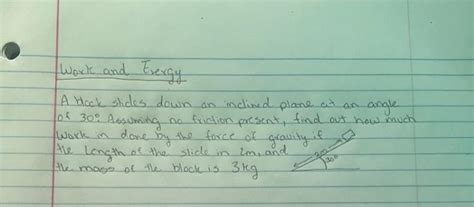 Work and Energy
A block slides down an inclined plane at an angle
of 30° Assuming no friction present, find out how much
work in done by the force of gravity if
the length of the slide in 2m, and
the mass of the block is 3kg
2m
30°